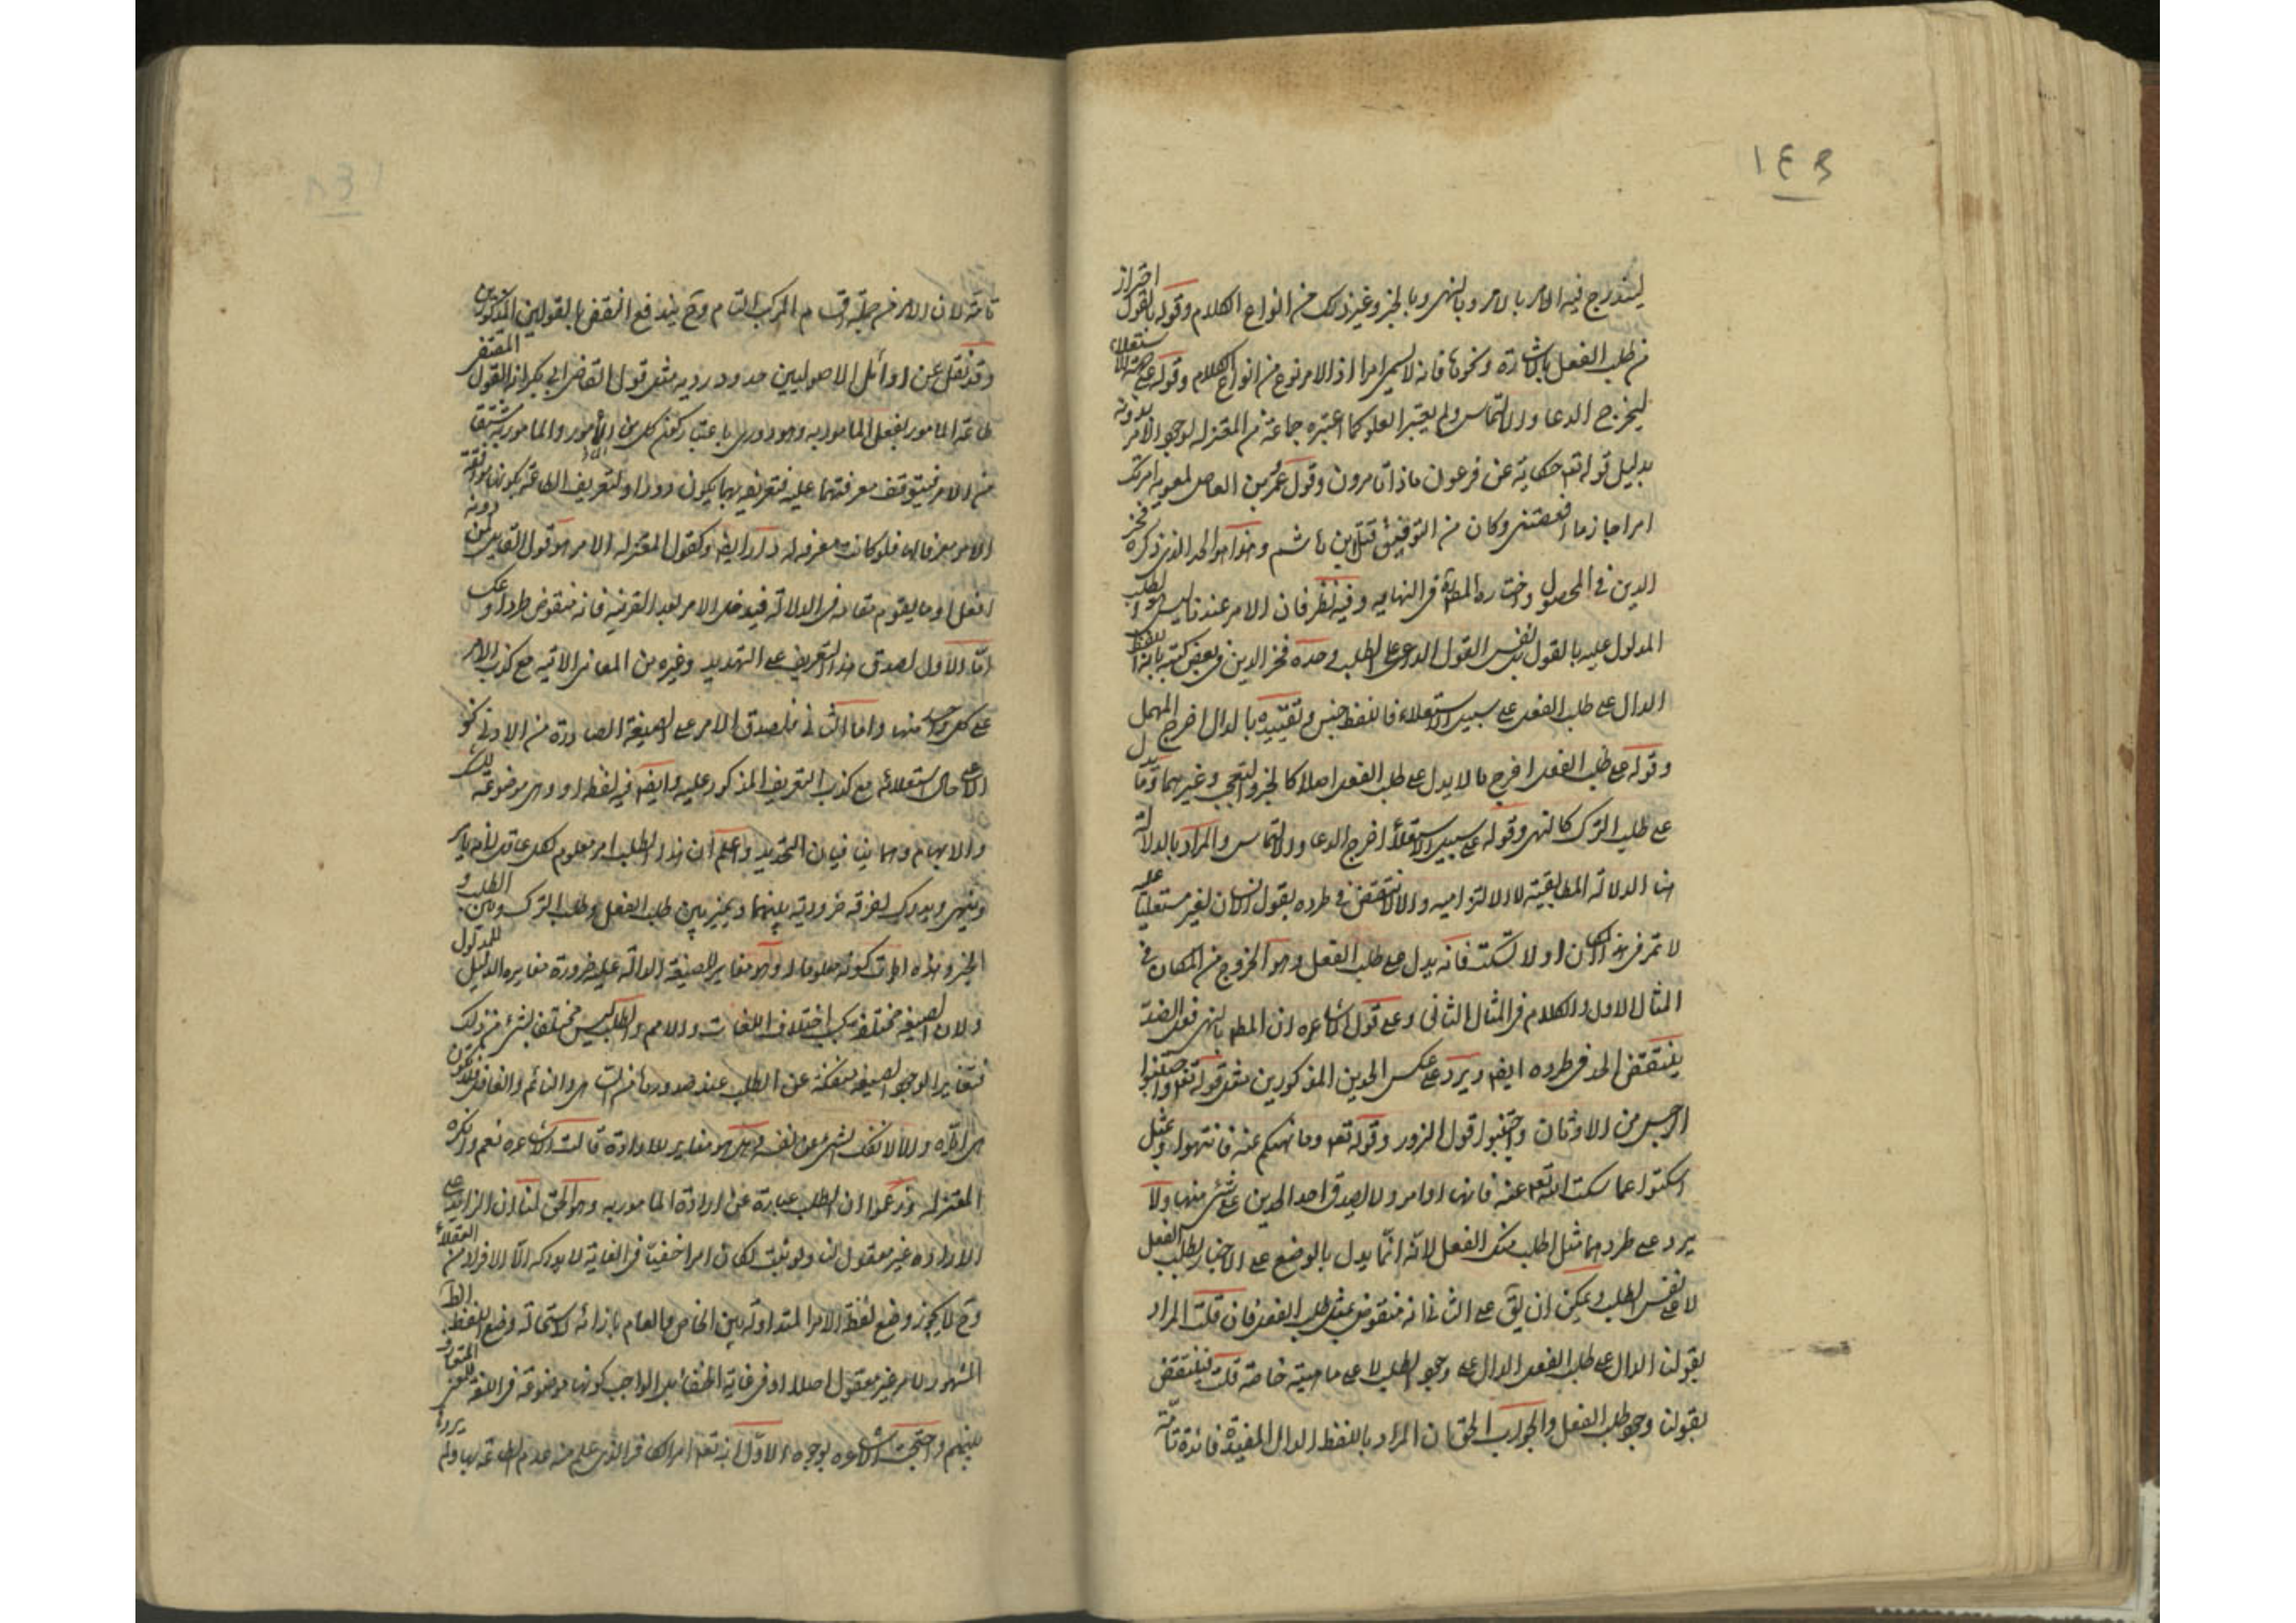 ١٤٣
ليندرج فيه الامر بالامر وبالنهي وبالخبر وغير ذلك من انواع الكلام وقوله بالقول احتراز
من طلب الفعل بالاشارة ونحوها فانه لا يسمى امرا اذ الامر نوع من انواع الكلام وقوله على جهة الاستعلاء
ليخرج الدعا والالتماس ولم يعتبر العلو كما اعتبره جماعة من المعتزله لوجود الامر بدونه
بدليل قوله تعه حكاية عن فرعون ماذا تامرون وقول عمرو بن العاص لمعويه امرتك
امرا جازما فعصيتني وكان من التوفيق قتل ابن هاشم وهذا هو الحد الذي ذكره فخر
الدين في المحصول واختاره المصه في النهايه وفيه نظر فان الامر عندنا ليس هو الطلب
المدلول عليه بالقول بل نفس القول الدال على الطلب وحده فخر الدين في بعض كتبه بانه اللفظ
الدال على طلب الفعل على سبيل الاستعلاء فاللفظ جنس وتقييده بالدال اخرج المهمل
وقوله على طلب الفعل اخرج ما لا يدل على طلب الفعل اصلا كالخبر والتعجب وغيرهما وما يدل
على طلب الترك كالنهي وقوله على سبيل الاستعلاء اخرج الدعا والالتماس والمراد بالدلالة
هنا الدلالة المطابقية لا الالتزاميه والا لانتقض في طرده بقول انسان لغير مستعليا عليه
لا تقر في هذا المكان او لا تسكت فانه يدل على طلب الفعل وهو الخروج من المكان في
المثال الاول والكلام في المثال الثاني وعلى قول الاشاعره ان المطه بالنهي فعل الضد
ينتقض الحد في طرده ايضه ويرد على عكس الحدين المذكورين مثل قوله تعه واجتنبوا
الرجس من الاوثان واجتنبوا قول الزور وقوله تعه وما نهيكم عنه فانتهوا ومثل
اسكتوا عما سكت الله تعه عنه فانها اوامر ولا يصدق احد الحدين على شئ منها ولا
يرد على طردهما مثل اطلب منك الفعل لانه انما يدل بالوضع على الاخبار بطلب الفعل
لا على نفس الطلب ويمكن ان يق على الثاني انه منقوض بمثل طلب الفعل فان قلت المراد
بقولنا الدال على طلب الفعل الدال على وجود الطلب لا على ماهيته خاصة قلت فينتقض
بقولنا وجود طلب الفعل والجواب الحق ان المراد باللفظ الدال المفيد فائدة تامة
تامة لان الامر من جملة اقسام المركب التام وح يندفع النقض بالقولين المذكورين
وقد نقل عن اوائل الاصوليين حدود رديه مثل قول القاضي ابي بكر انه القول المقتضي
طاعة المامور بفعل المامور به وهو دوري باعتبار كون كل من المامور والمامور به مشتقا
من الامر فيتوقف معرفتهما عليه فتعريفه بهما يكون دورا ولتعريف الطاعة بكونها موافقة
الامر فلو كانت معرفه له دار ايضه وكقول المعتزله الامر هو قول القايل لمن دونه
افعل او ما يقوم مقامه في الدلالة فيدخل الامر بغير العربيه فانه منقوض طردا وعكسا
اما الاول لصدق هذا التعريف على التهديد وغيره من المعاني الاتيه مع كذب الامر
على كل واحد منها واما الثاني فلصدق الامر على الصيغة الصادرة من الادنى نحو
الاعلى حال استعلائه مع كذب التعريف المذكور عليه وايضه فيه لفظه او وهي موضوعة للشك
والابهام وهما ينافيان التحديد واعلم ان هذا الطلب امر معلوم لكل عاقل لانه يامر
وينهى ويدرك تفرقة ضرورية بينهما ويميز بين طلب الفعل وطلب الترك وبين الطلب و
الخبر وهو مغاير للصيغة الدالة عليه ضرورة مغايره الدليل للمدلول
ولان الصيغه مختلفه بحسب اختلاف اللغات والامم والطلب ليس مختلف بشئ من ذلك
فتغايرا لوجود الصيغه منفكة عن الطلب عند صدورها من الساهي والنائم والغافل
والا لانفك الشئ عن نفسه وهل هو مغاير للارادة قالت الاشاعره نعم وانكره
المعتزله وزعموا ان الطلب عبارة عن ارادة المامور به وهو الحق لنا ان الزايد على
الارادة غير معقول لنا ولو ثبت لكان امرا خفيا في الغاية لا يدركه الا الافراد من العقلاء
وح لا يجوز وضع لفظ الامر المتداولة بين الخاص والعام بازائه لاستحالة وضع اللفظ الظاهر
المشهور لامر غير معقول اصلا او في غاية الخفاء بل الواجب كونها موضوعة في اللغة للمعنى المتعارف
بينهم واحتجت الاشاعره بوجوه الاول انه تعه امر الكافر الذي علم منه عدم الطاعة بها ولم يرد